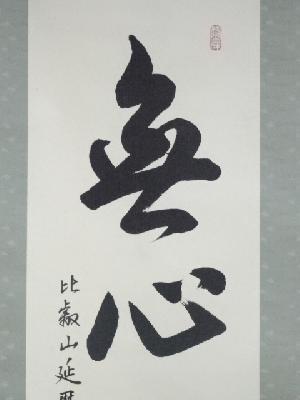 無心
比叡山延暦